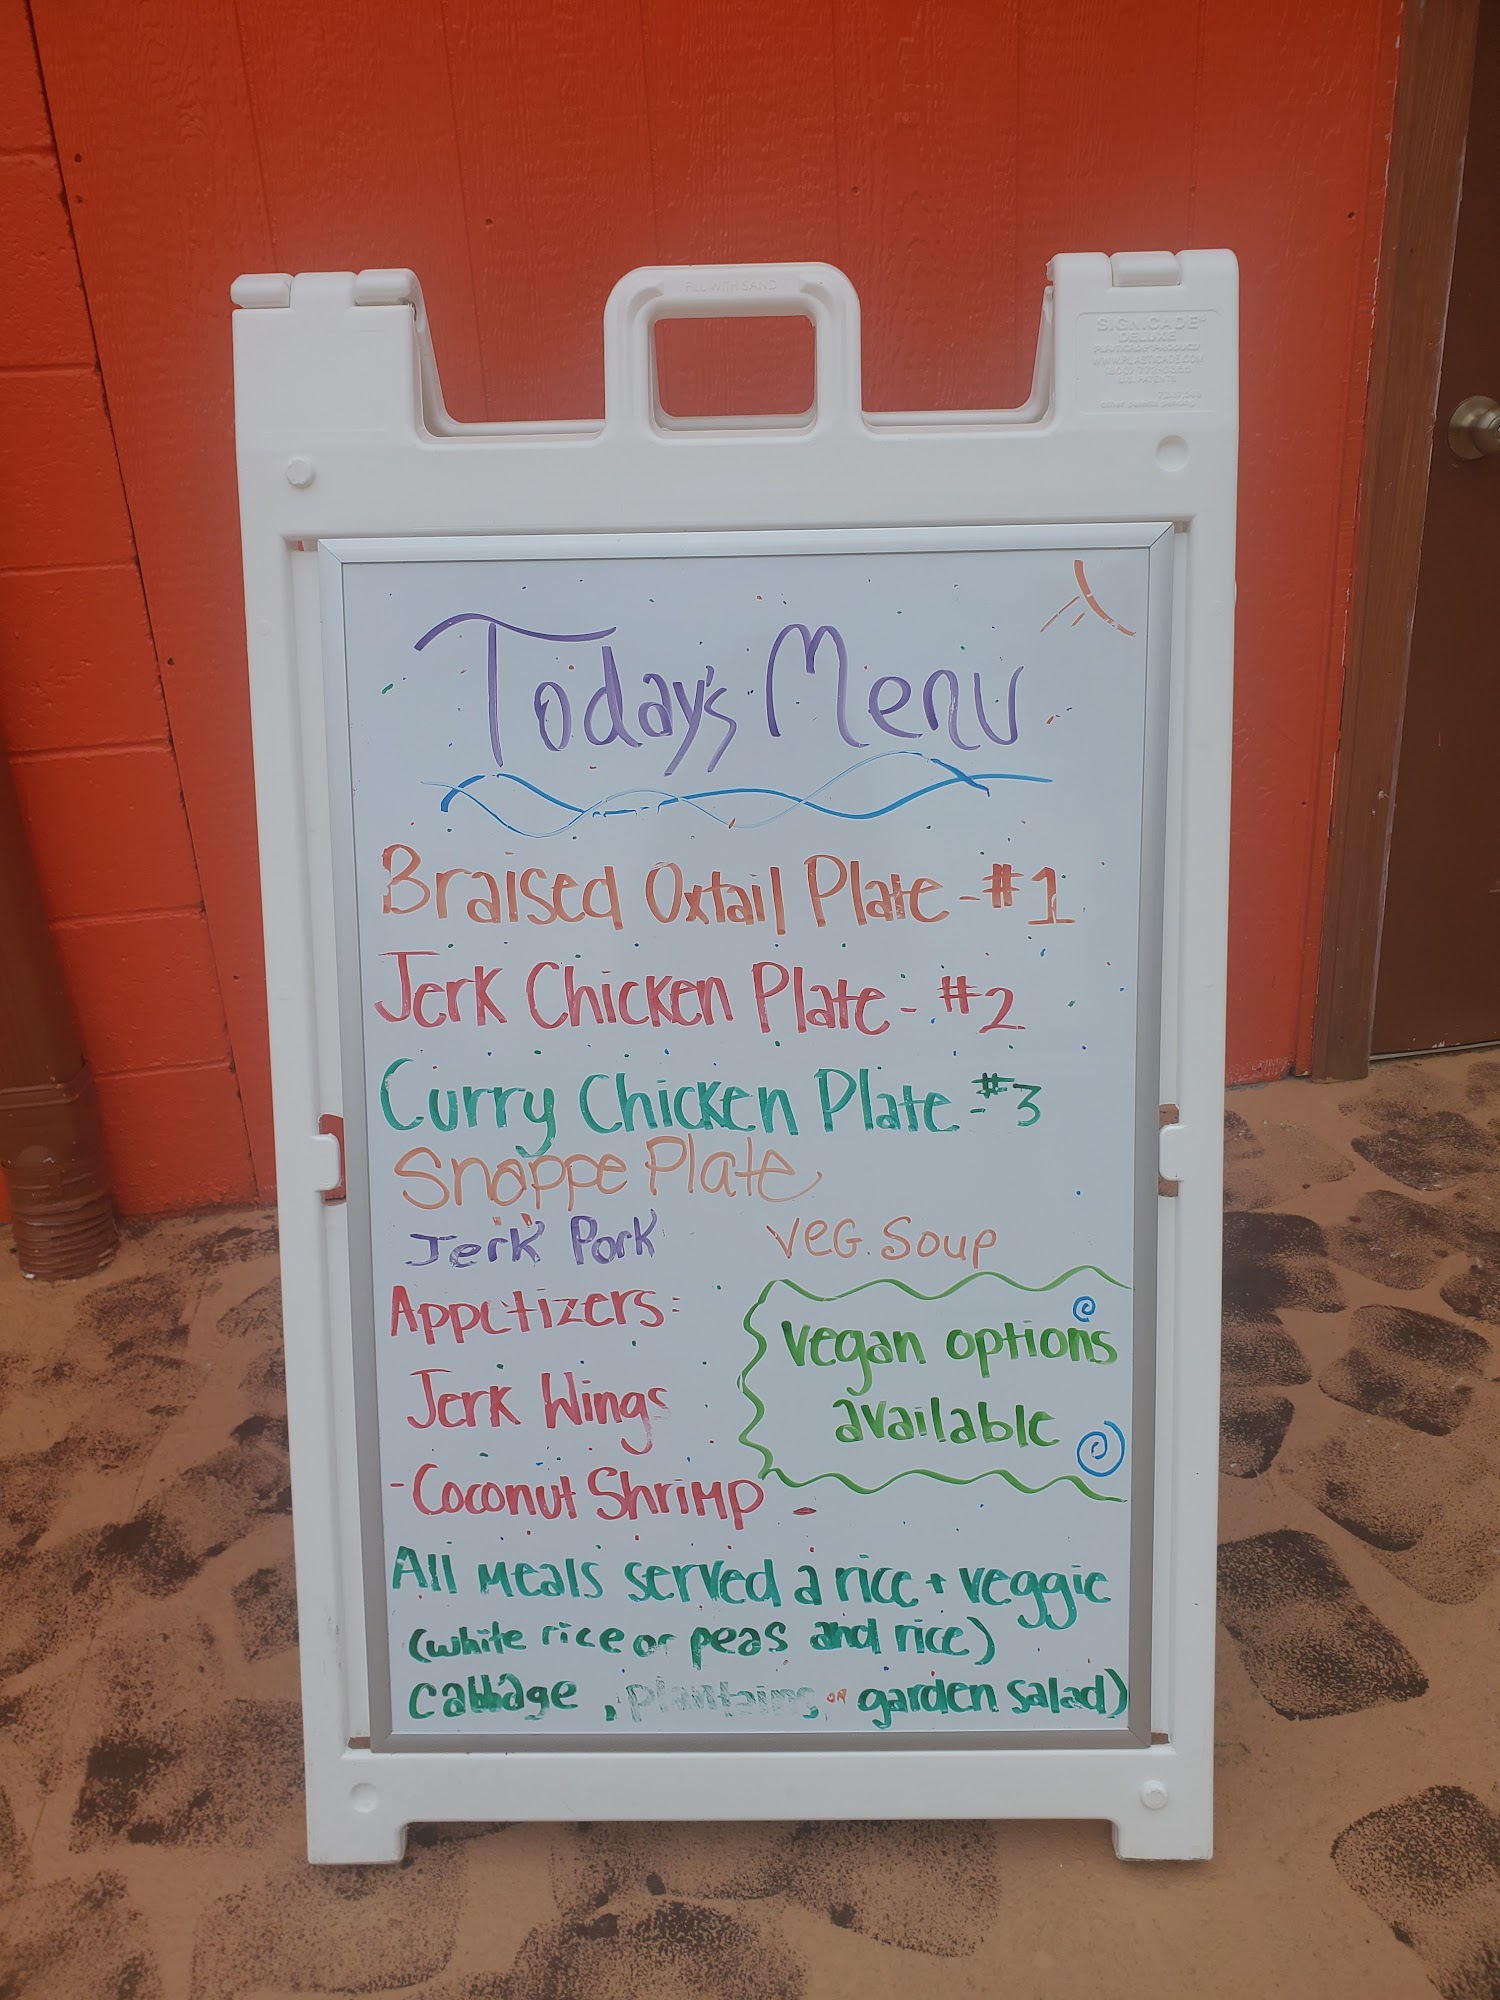 FILL WITH SAND
SIGNICADE®
DELUXE
PLASTICADE PRODUCT
WWW.PLASTICADE.COM
U.S. PATENTS
other patents pending
Today's Menu
Braised Oxtail Plate - #1
Jerk Chicken Plate - #2
Curry Chicken Plate - #3
Snappe Plate
Jerk Pork VEG. Soup
Appetizers:
Jerk Wings
vegan options
available
- Coconut Shrimp -
All meals served a rice + veggie
(white rice or peas and rice)
cabbage, plantains or garden salad)